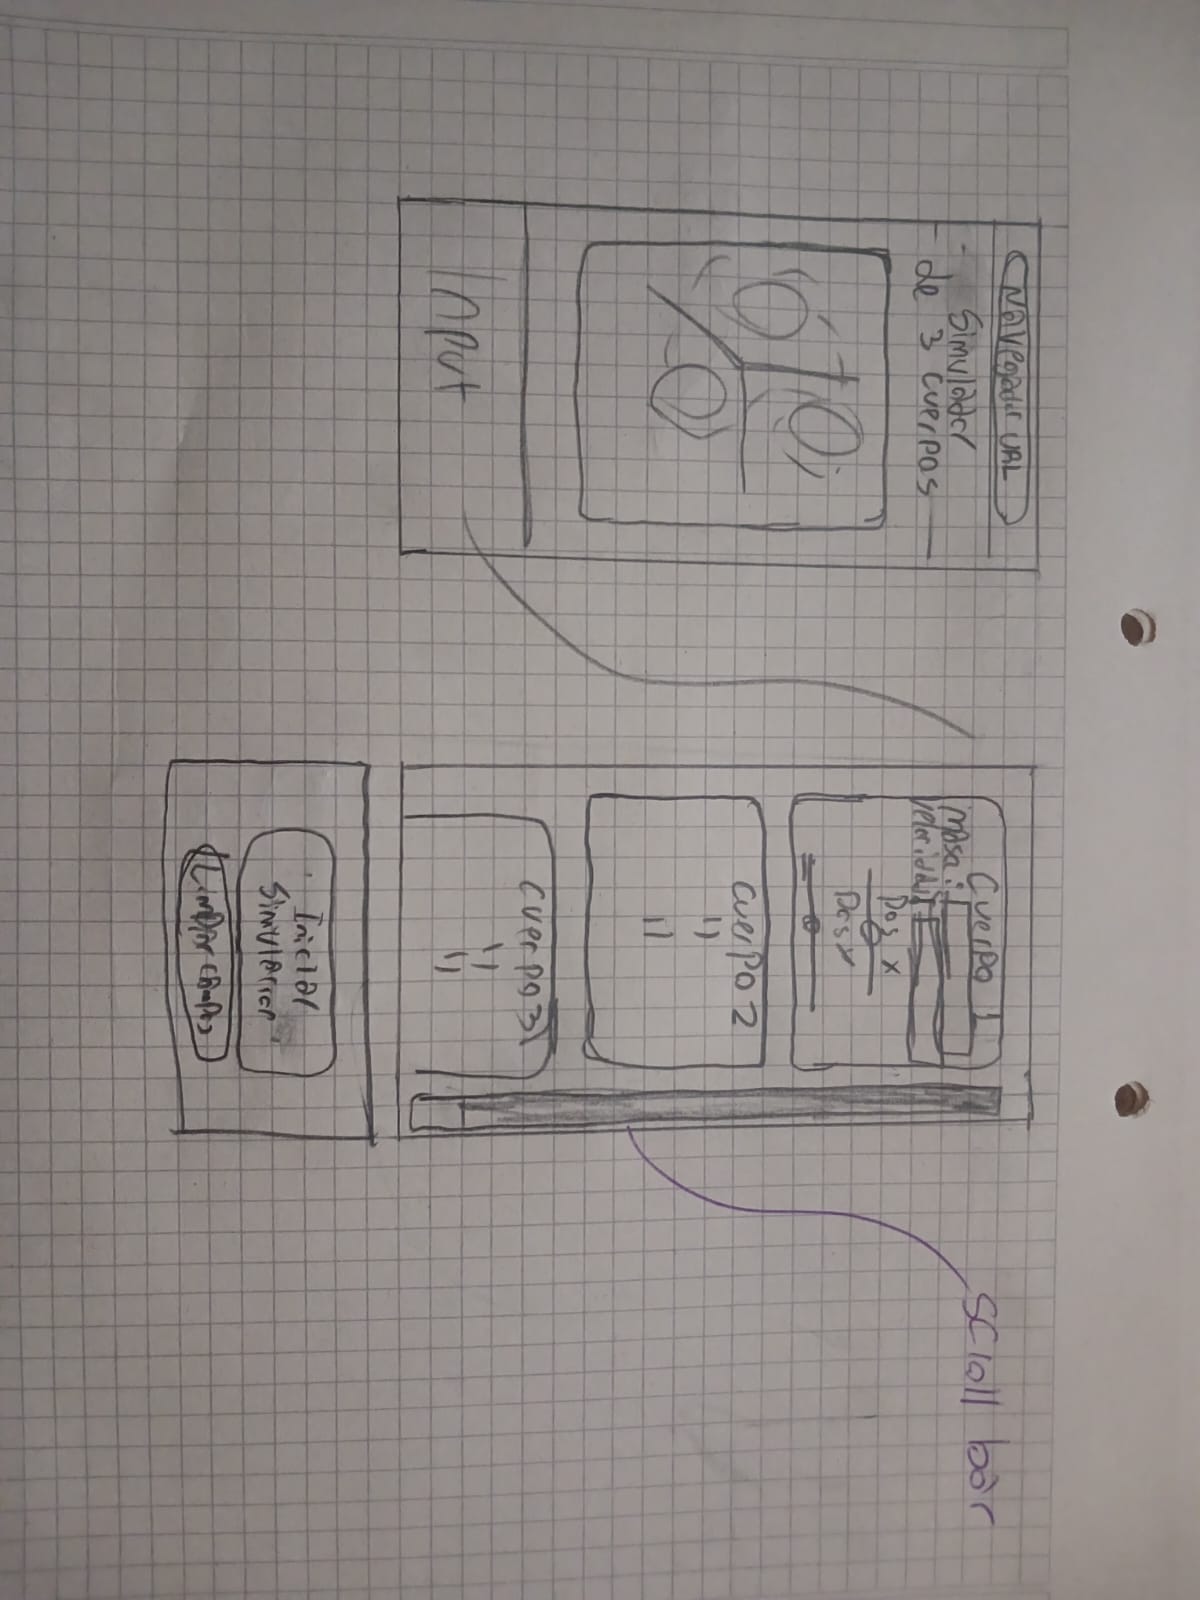 Navegador URL
Simulador
de 3 cuerpos
Input
Cuerpo 1
masa:
velocidad:
Pos x
Pos y
Cuerpo 2
"
"
Cuerpo 3
"
"
Iniciar
Simulación
Limpiar campos
Scroll bar